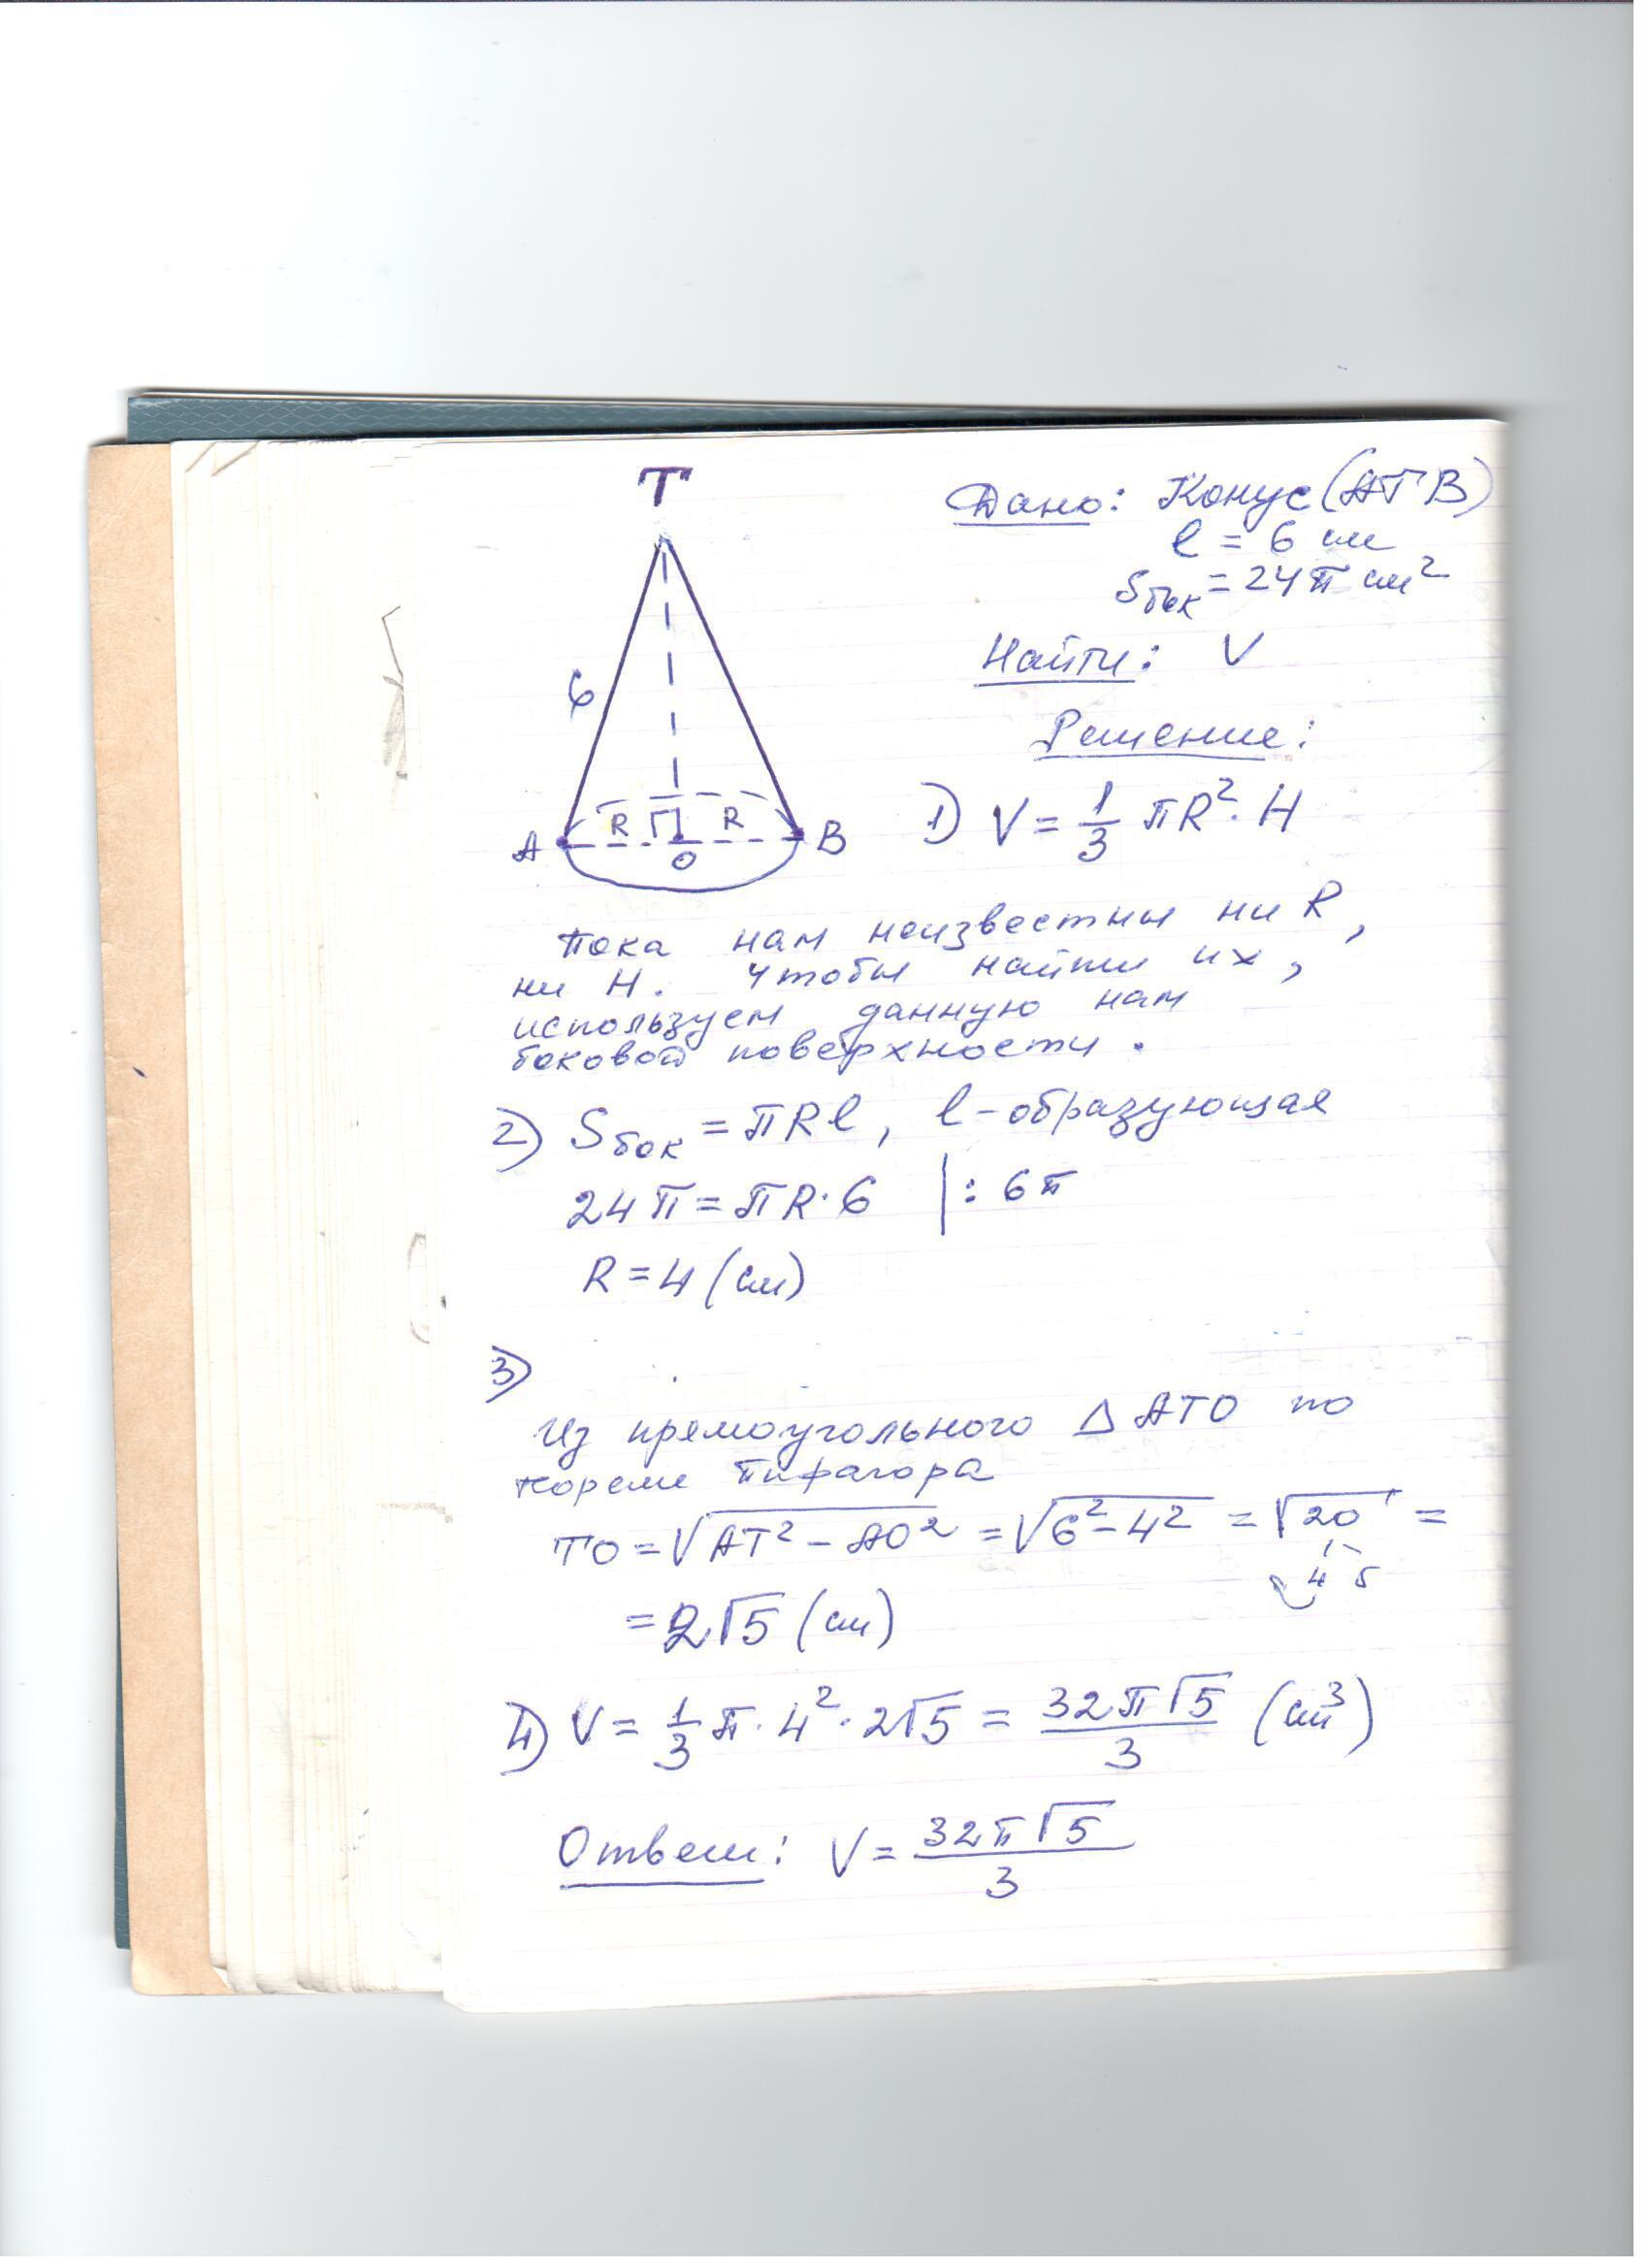 T
Дано: Конус (ATB)
l = 6 см
Sбок = 24π см²
Найти: V
6
Решение:
A R R B
O
1) V = 1/3 πR² · H
Пока нам неизвестны ни R,
ни H. Чтобы найти их,
используем данную нам
боковой поверхности.
2) Sбок = πRl, l - образующая
24π = πR·6 |: 6π
R = 4 (см)
3)
Из прямоугольного △ ATO по
теореме Пифагора
TO = √(AT² - AO²) = √(6² - 4²) = √20 =
4 5
= 2√5 (см)
4) V = 1/3 π · 4² · 2√5 = 32π√5/3 (см³)
Ответ: V = 32π√5/3